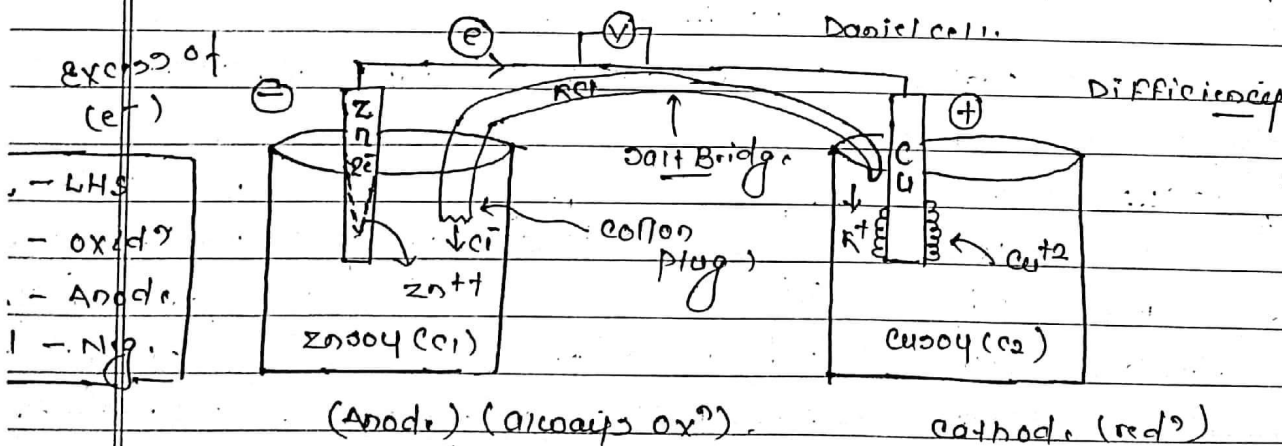 Daniel cell.
excess of
(e⁻)
e
V
⊖
KCl
⊕
Difficiency
Zn
2e⁻
Salt Bridge.
Cu
, - LHS
- oxidⁿ
. - Anode.
l - Np.
cotton
plug
↓ Cl⁻
Zn⁺⁺
↓
K⁺
Cu⁺²
ZnSO4 (C1)
CuSO4 (C2)
(Anode) (always oxⁿ).
cathode (redⁿ)